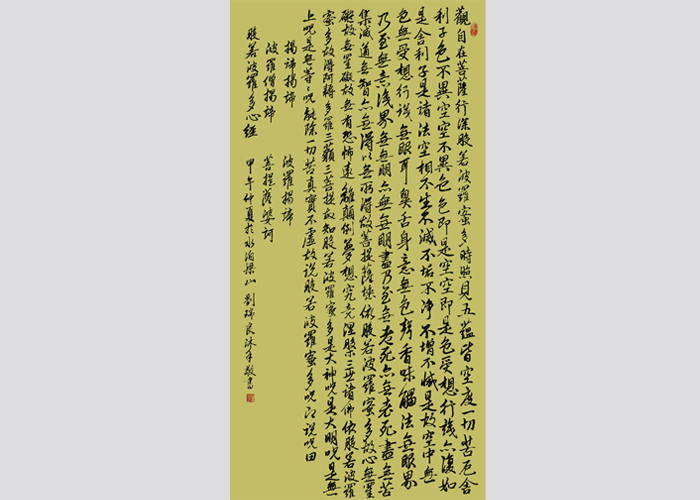 觀自在菩薩行深般若波羅蜜多時照見五蘊皆空度一切苦厄舍
利子色不異空空不異色色即是空空即是色受想行識亦復如
是舍利子是諸法空相不生不滅不垢不净不增不減是故空中無
色無受想行識無眼耳鼻舌身意無色聲香味觸法無眼界
乃至無意識界無無明亦無無明盡乃至無老死亦無老死盡無苦
集滅道無智亦無得以無所得故菩提薩埵依般若波羅蜜多故心無罣
礙故無罣礙故無有恐怖遠離顛倒夢想究竟涅槃三世諸佛依般若波羅
蜜多故得阿耨多羅三藐三菩提故知般若波羅蜜多是大神咒是大明咒是無
上咒是無等々咒能除一切苦真實不虛故說般若波羅蜜多咒即說咒曰
揭諦揭諦 波羅揭諦
波羅僧揭諦 菩提薩婆訶
般若波羅多心經 甲午仲夏於水泊梁山 劉瑞良沐手敬書